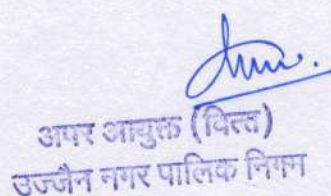 अपर आयुक्त (वित्त)
उज्जैन नगर पालिक निगम